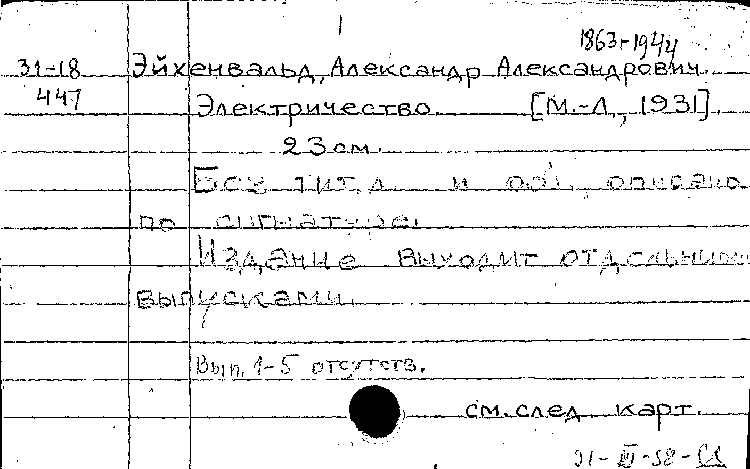 1
1863-1944
31-18 Эйхенвальд, Александр Александрович.
447 Электричество. [М.-Л., 1931].
23 см.
Без тит. л. и обл., описано
по сигнатуре.
Издание выходит отдельными
выпусками.
Вып. 1-5 отсутств.
см. след. карт.